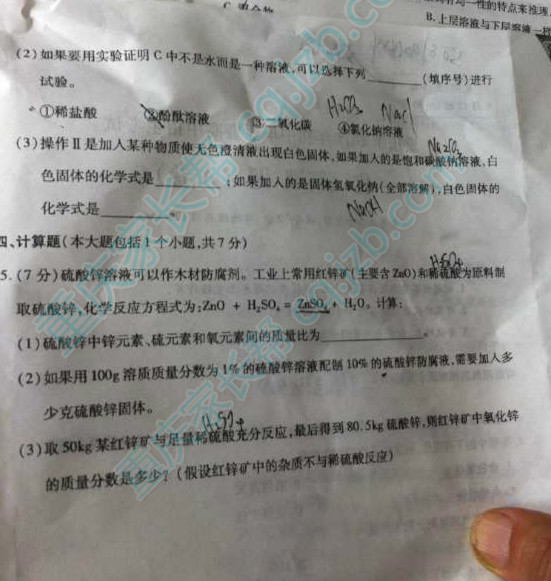 性的特点来推理
B.上层溶液与下层溶液一样
(2)如果要用实验证明C中不是水而是一种溶液,可以选择下列________(填序号)进行
试验。
H₂CO₃ NaCl
①稀盐酸 ②酚酞溶液 ③二氧化碳 ④氯化钠溶液
Na₂CO₃
(3)操作Ⅱ是加入某种物质使无色澄清液出现白色固体,如果加入的是饱和碳酸钠溶液,白
色固体的化学式是________;如果加入的是固体氢氧化钠(全部溶解),白色固体的
NaOH
化学式是________。
四、计算题(本大题包括1个小题,共7分)
H₂SO₄
5.(7分)硫酸锌溶液可以作木材防腐剂。工业上常用红锌矿(主要含ZnO)和稀硫酸为原料制
取硫酸锌,化学反应方程式为:ZnO + H₂SO₄ = ZnSO₄ + H₂O。计算:
(1)硫酸锌中锌元素、硫元素和氧元素间的质量比为________________。
(2)如果用100g溶质质量分数为1%的硫酸锌溶液配制10%的硫酸锌防腐液,需要加入多
少克硫酸锌固体。
H₂SO₄
(3)取50kg某红锌矿与足量稀硫酸充分反应,最后得到80.5kg硫酸锌,则红锌矿中氧化锌
的质量分数是多少?(假设红锌矿中的杂质不与稀硫酸反应)
重庆家长帮 cq.jzb.com